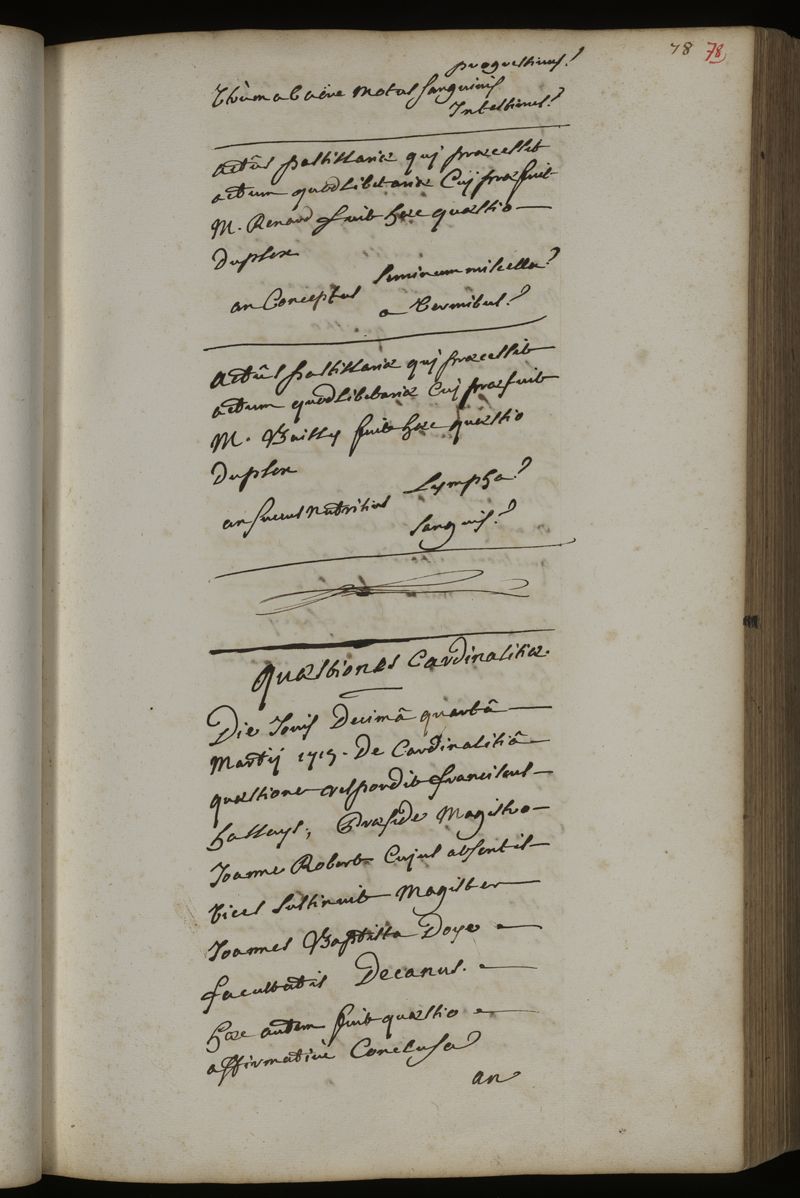 78 78
progressivus?
Utrùm ab aëre motus sanguinis
Intestinus?
actûs pastillariæ quj præcessit
actum quodlibetariæ Cuj præfuit
M. Renard fuit hæc quæstio
Duplex
an Conceptus seminum miscella?
a Vermibus?
Actûs pastillariæ quj præcessit
actum quodlibetariæ Cuj præfuit
M. Bailly fuit hæc quæstio
Duplex
an succus nutritius Lympha?
sanguis?
Quæstiones Cardinalitiæ.
Die Jovis Decimâ quartâ
Martij 1715. De Cardinalitiâ
quæstione respondit franciscus
hassays, Præside Magistro
Joanne Robert Cujus absentis
vices sustinuit Magister
Joannes Baptista Doye
facultatis Decanus.
hæc autem fuit quæstio
affirmativè Conclusa
an